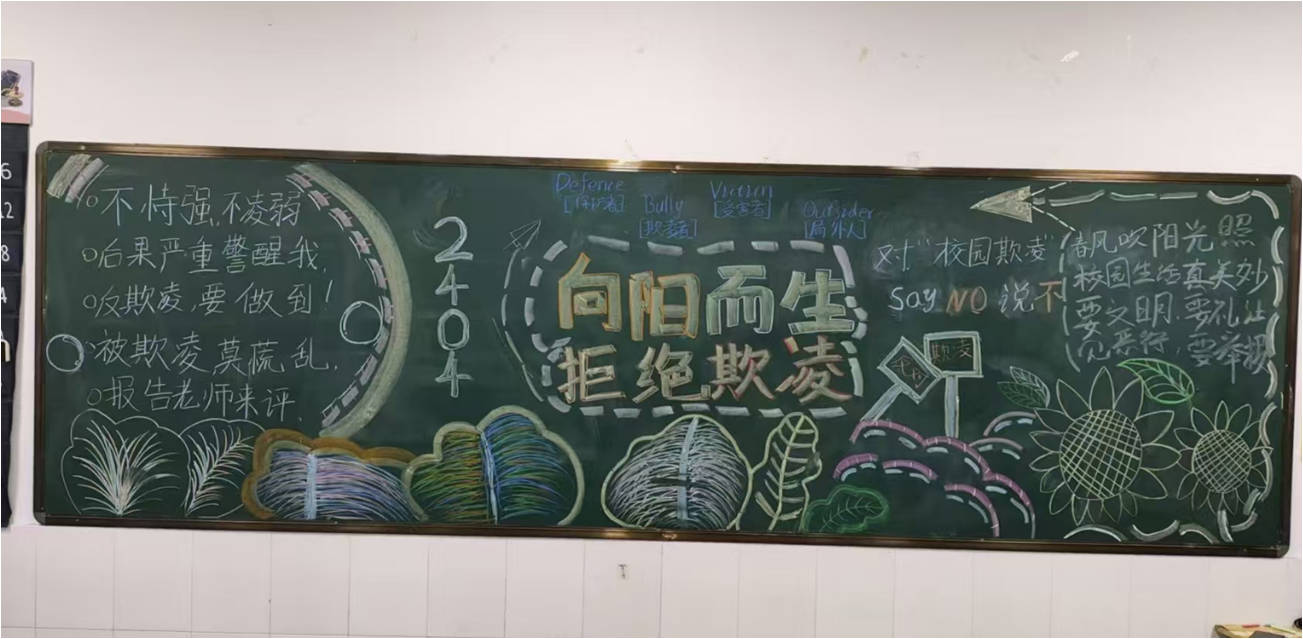 不恃强,不凌弱
后果严重警醒我,
反欺凌,要做到!
被欺凌莫慌乱,
报告老师来评.
2404
Defence
[保护者]
Bully
[欺凌者]
Victim
[受害者]
Outsider
[局外人]
向阳而生
拒绝欺凌
对"校园欺凌"
Say NO 说不
欺凌
春风吹阳光照
校园生活真美妙
要文明,要礼让
见恶行,要举报
6
12
8
4